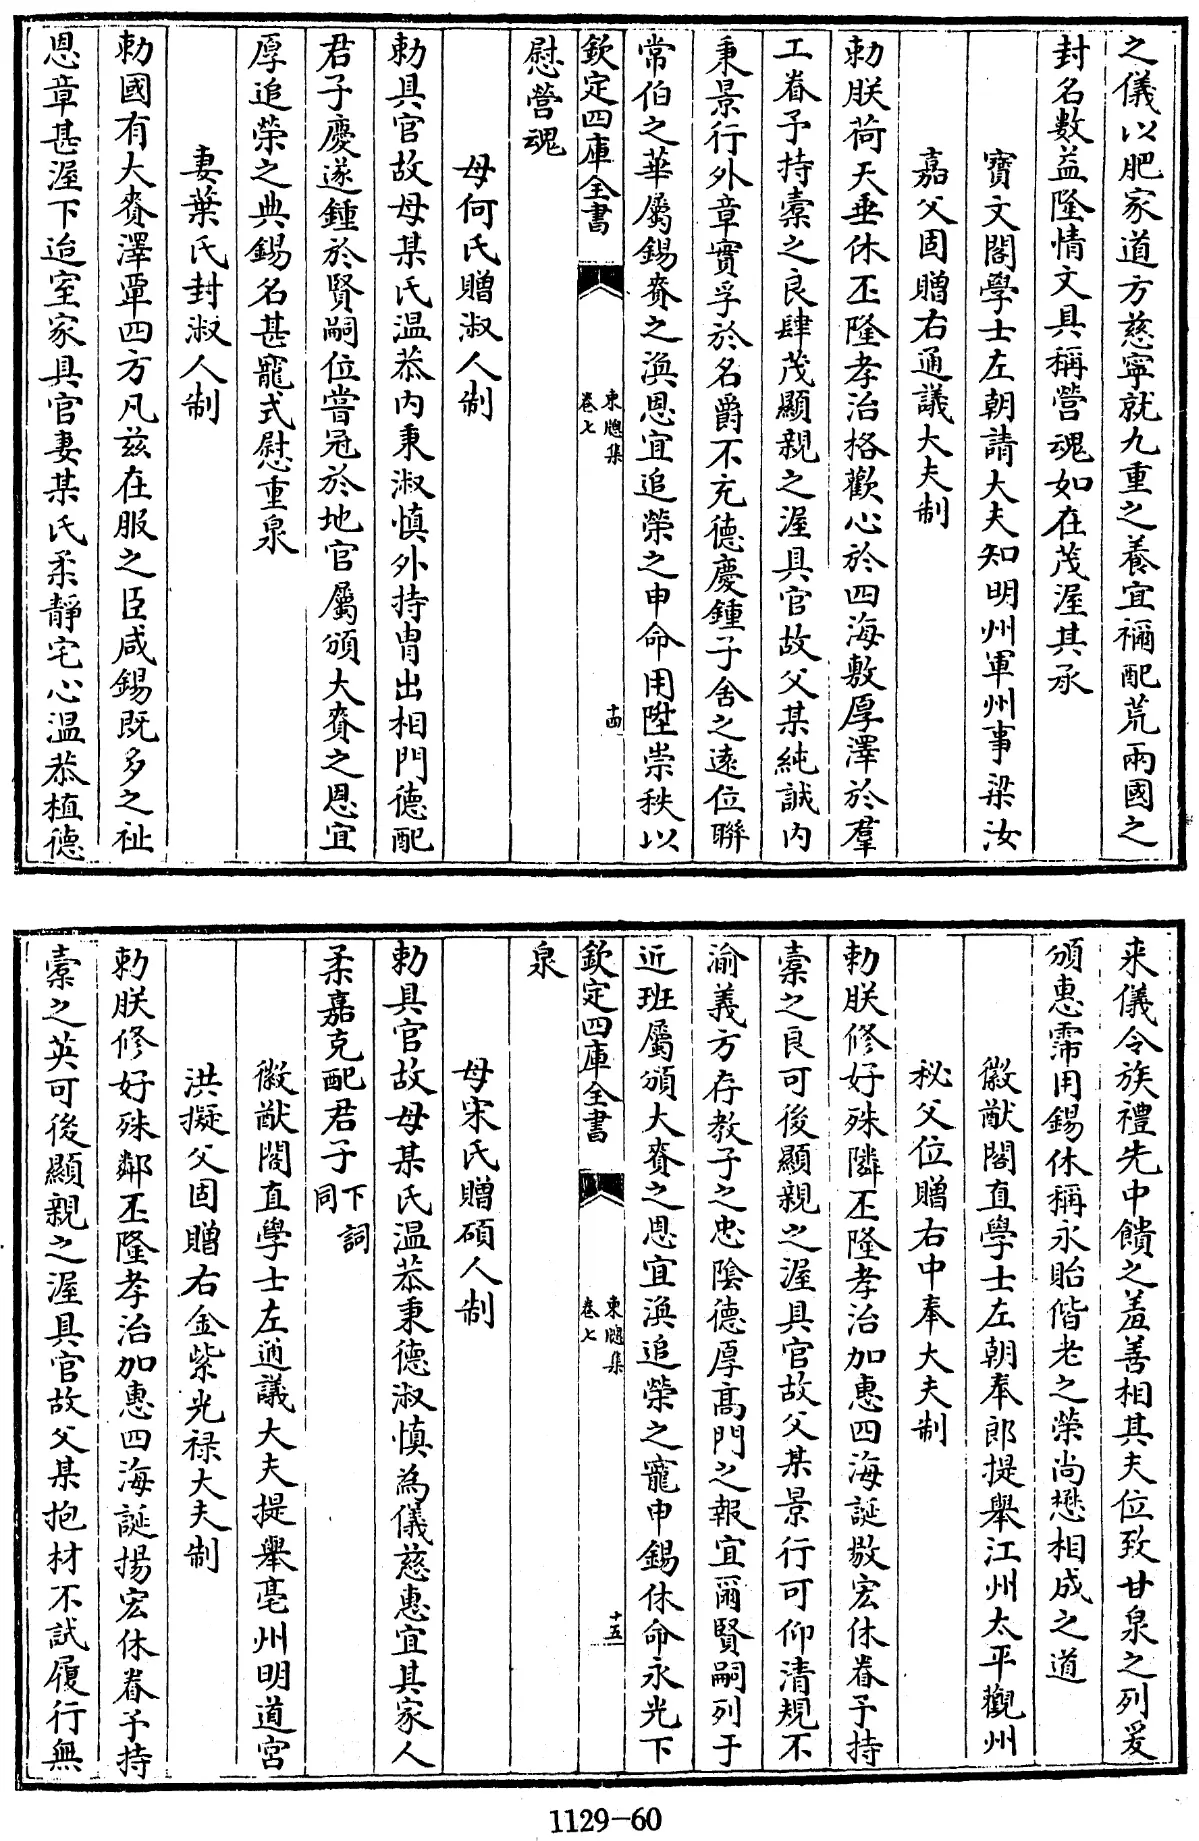 之儀以肥家道方慈寧就九重之養宜禰配荒兩國之
封名數益隆情文具稱營魂如在茂渥其承
寶文閣學士左朝請大夫知明州軍州事梁汝
嘉父固贈右通議大夫制
勅朕荷天垂休丕隆孝治格歡心於四海敷厚澤於羣
工眷予持橐之良肆茂顯親之渥具官故父某純誠内
秉景行外章實孚於名爵不充德慶鍾子舍之遠位聯
常伯之華屬錫賚之渙恩宜追榮之申命用陞崇秩以
欽定四庫全書
東牕集
卷七
十四
慰營魂
母何氏贈淑人制
勅具官故母某氏温恭内秉淑慎外持胄出相門德配
君子慶遂鍾於賢嗣位嘗冠於地官屬頒大賚之恩宜
厚追榮之典錫名甚寵式慰重泉
妻葉氏封淑人制
勅國有大賚澤覃四方凡兹在服之臣咸錫既多之祉
恩章甚渥下迨室家具官妻某氏柔靜宅心温恭植德
来儀令族禮先中饋之羞善相其夫位致甘泉之列爰
頒惠霈用錫休稱永貽偕老之榮尚懋相成之道
徽猷閣直學士左朝奉郎提舉江州太平觀州
秘父位贈右中奉大夫制
勅朕修好殊隣丕隆孝治加惠四海誕敭宏休眷予持
橐之良可後顯親之渥具官故父某景行可仰清規不
渝義方存教子之忠陰德厚高門之報宜爾賢嗣列于
近班屬頒大賚之恩宜渙追榮之寵申錫休命永光下
欽定四庫全書
東牕集
卷七
十五
泉
母宋氏贈碩人制
勅具官故母某氏温恭秉德淑慎為儀慈惠宜其家人
柔嘉克配君子下詞同
徽猷閣直學士左通議大夫提舉亳州明道宮
洪擬父固贈右金紫光禄大夫制
勅朕修好殊鄰丕隆孝治加惠四海誕揚宏休眷予持
橐之英可後顯親之渥具官故父某抱材不試履行無
1129-60